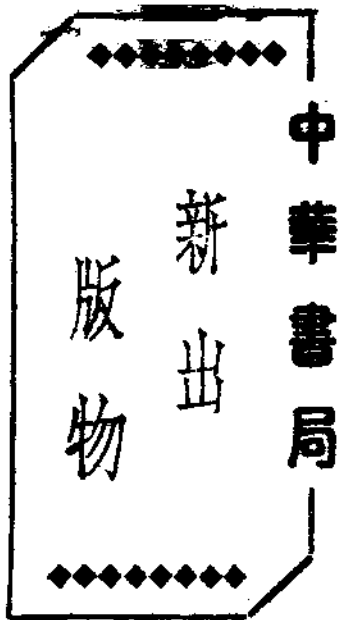 中華書局
新出
版物